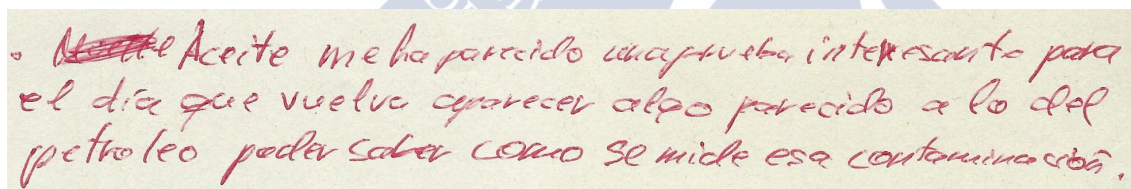 . Aceite me ha parecido una prueba interesante para
el día que vuelva aparecer algo parecido a lo del
petroleo poder saber como se mide esa contaminación.